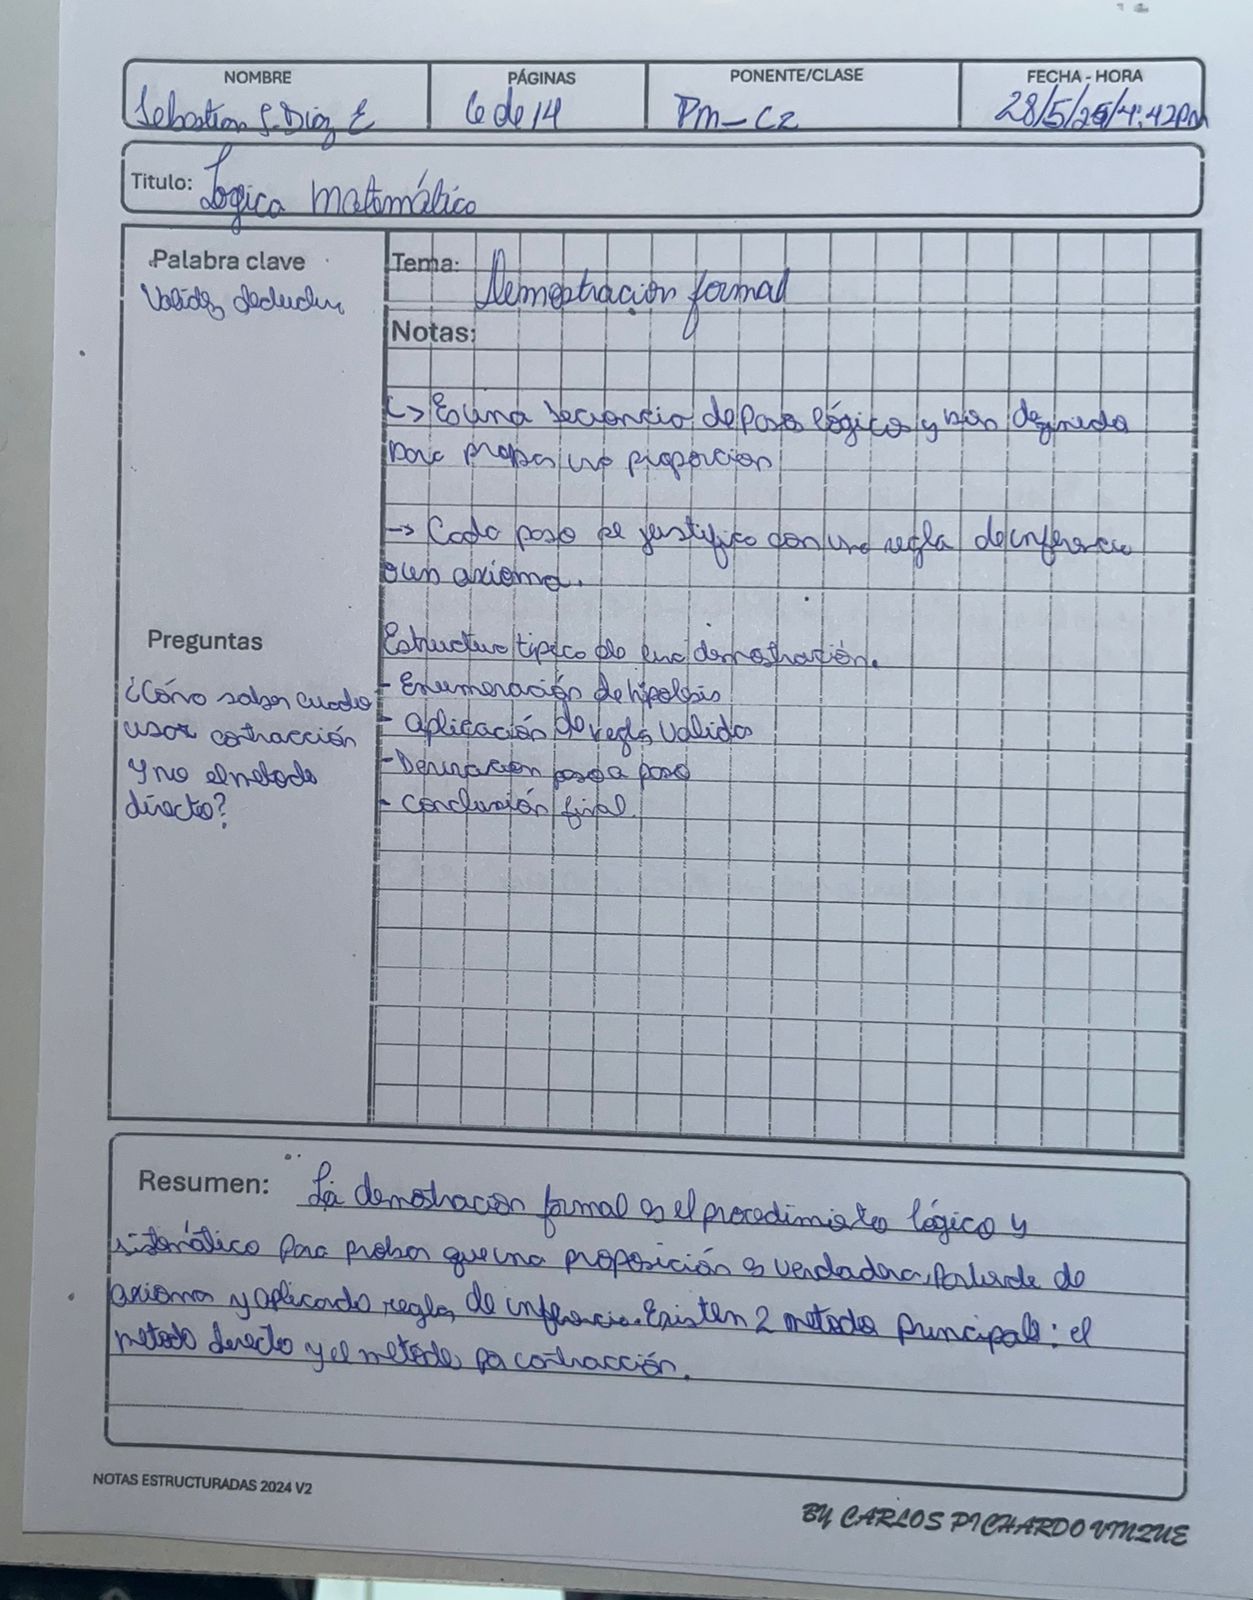 NOMBRE PÁGINAS PONENTE/CLASE FECHA - HORA
Sebastian S. Diaz E 6 de 14 Pm-C2 28/5/25/4:42Pm
Titulo: Logica matomático
Palabra clave
Validez deducción
Tema: Demostración formal
Notas:
Es una secuencia de pasos lógicos y bien definida
para probar una proporcion
→ Cada paso se justifica con una regla de inferencia
o un axioma.
Estructura tipica de una demostración.
- Enumeración de hipotesis
- aplicación de reglas validas
- Derivacion paso a paso
- Conclusión final.
Preguntas
¿Cómo saber cuando
usar contracción
y no el metodo
directo?
Resumen: La demostracion formal es el procedimiento lógico y
sistemático para probar que una proposición es verdadera, partiendo de
axiomas y aplicando reglas de inferencia. Existen 2 metodos principales: el
metodo directo y el metodo por contracción.
NOTAS ESTRUCTURADAS 2024 V2
BY CARLOS PICHARDO VINZUE